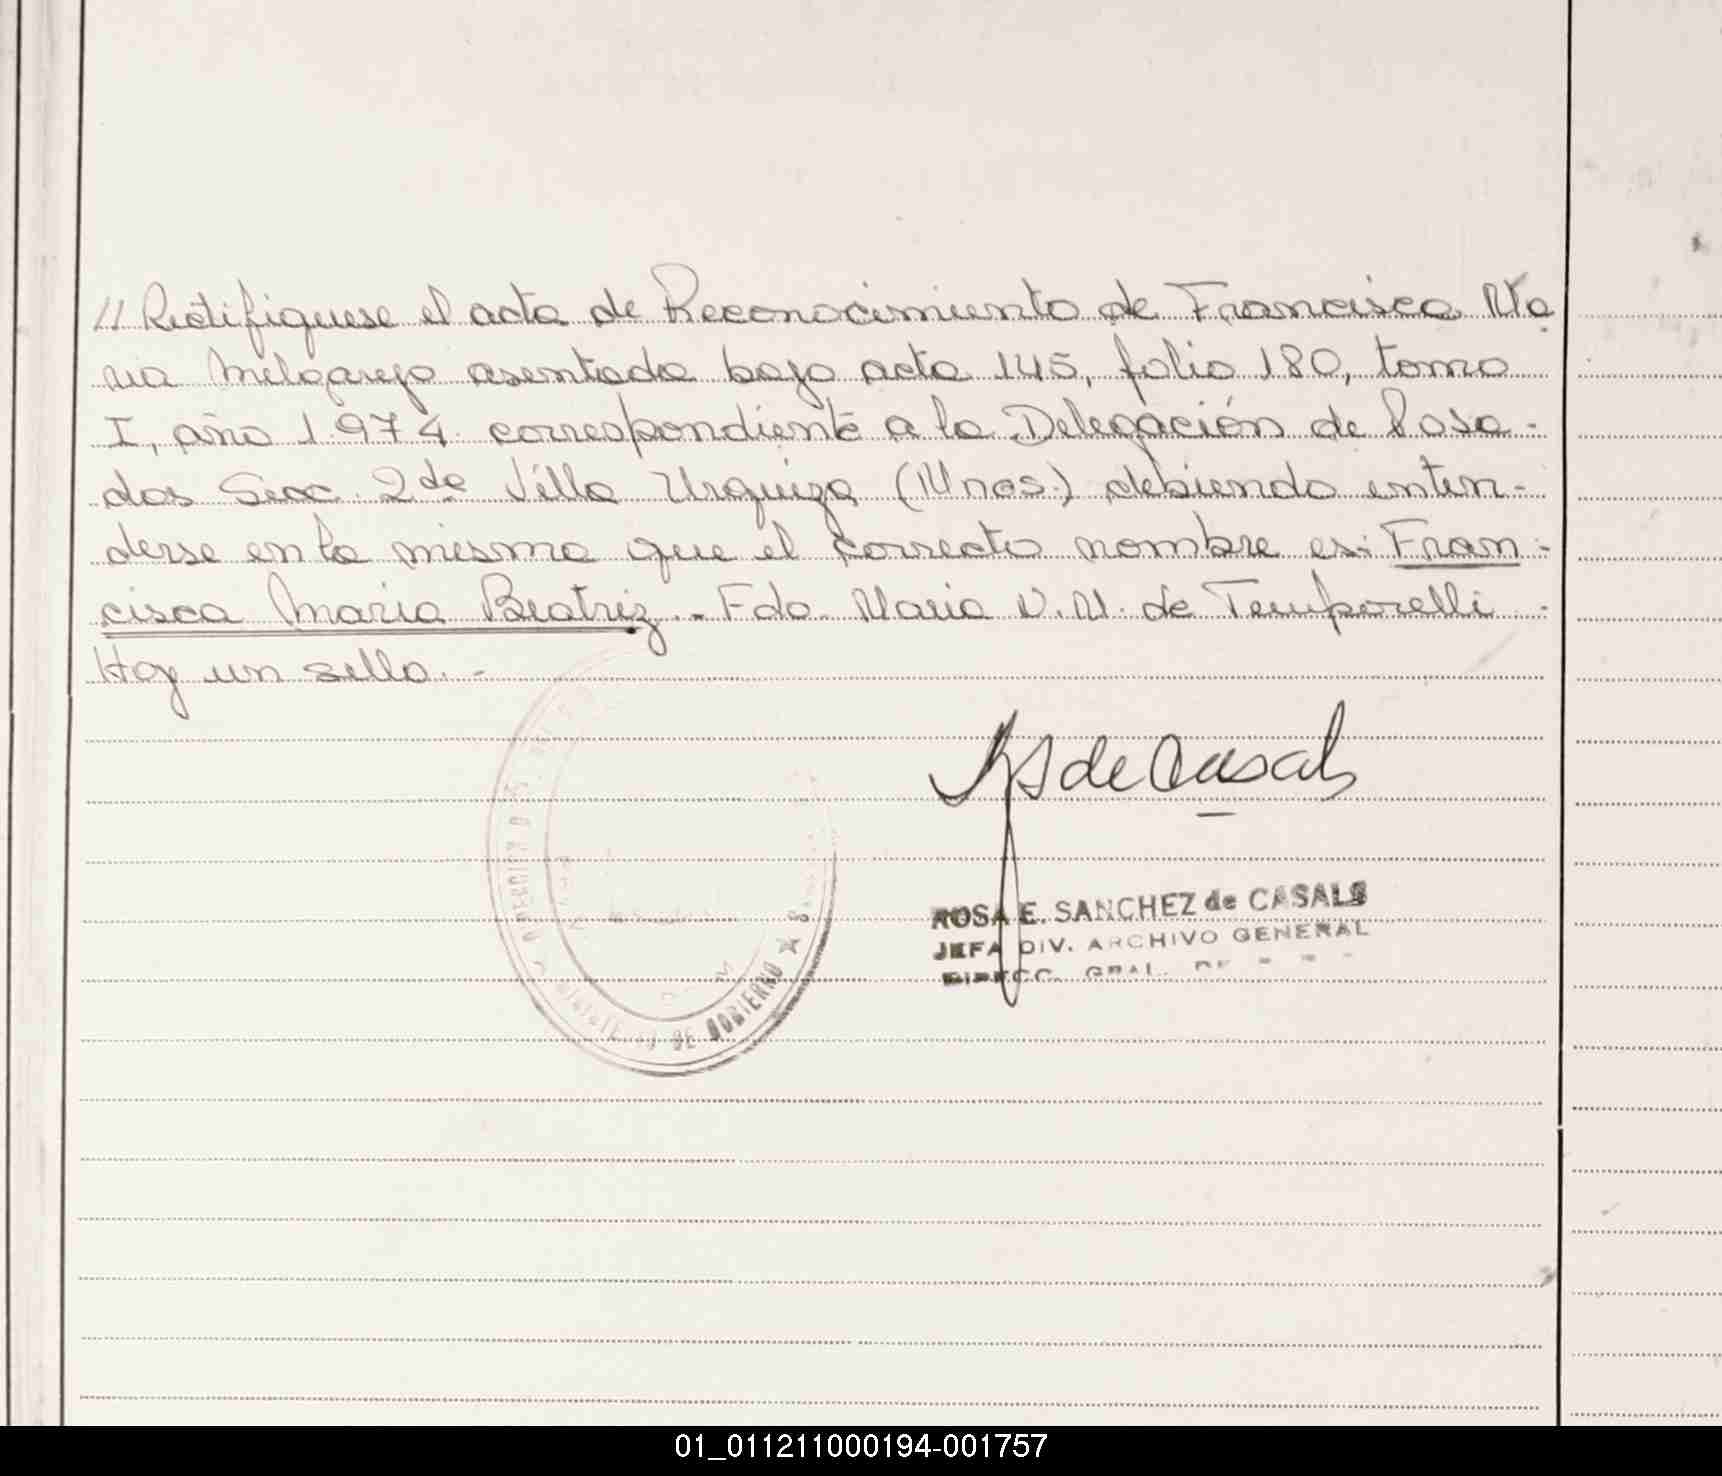 // Rectifiquese el acta de Reconocimiento de Francisca Ma
ria Melgarejo asentada bajo acta 145, folio 180, tomo
I, año 1.974. correspondiente a la Delegación de Posa-
das Secc. 2da Villa Urquiza (Mnes.) debiendo enten-
derse en la misma que el correcto nombre es: Fran-
cisca Maria Beatriz.- Fdo. Maria N.M. de Temporelli -
Hay un sello.-
RS de Casals
ROSA E. SANCHEZ de CASALS
JEFA DIV. ARCHIVO GENERAL
DIRECC. GRAL. DE
MINISTERIO DE GOBIERNO ★
01_011211000194-001757